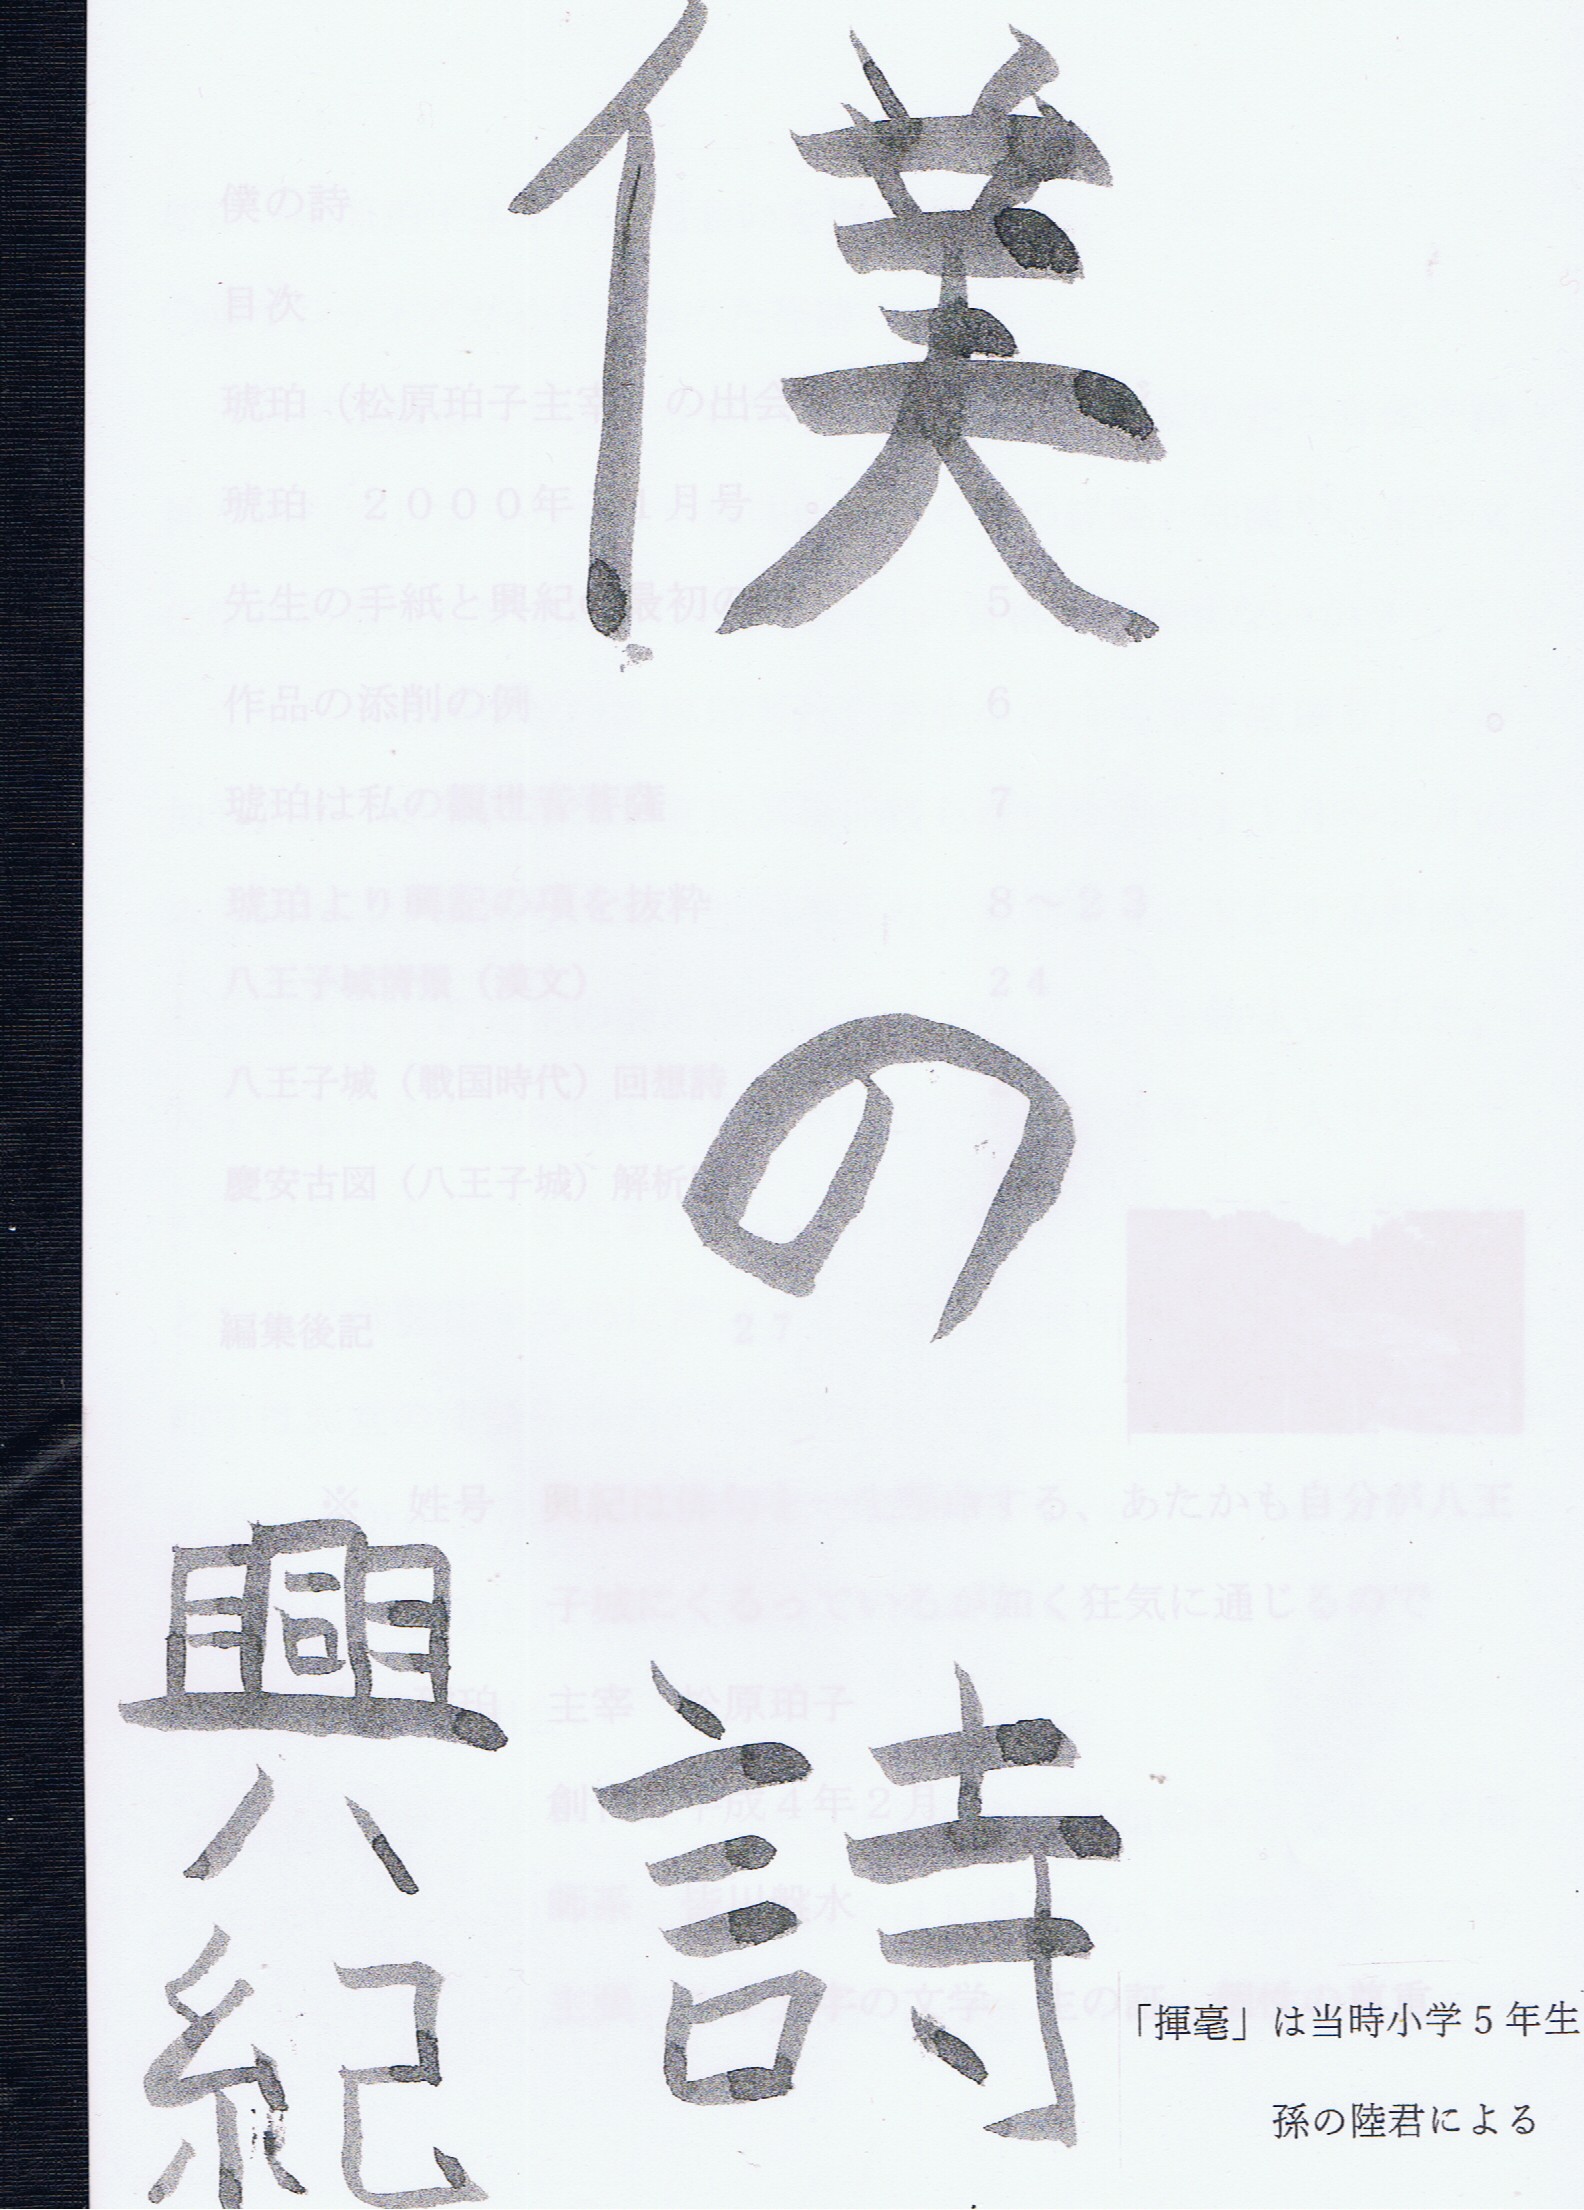 僕の詩
興紀
「揮毫」は当時小学5年生
孫の陸君による
僕の詩
目次
琥珀（松原珀子主宰）の出会
琥珀　２０００年　1月号
先生の手紙と興紀の最初の
5
作品の添削の例
6
琥珀は私の観世音菩薩
7
琥珀より興紀の項を抜粋
8～23
八王子城情景（漢文）
24
八王子城（戦国時代）回想詩
慶安古図（八王子城）解析
編集後記
27
※　姓号
する、あたかも自分が八王
如く狂気に通じるので
主宰　松原珀子
平成４年２月
の文学